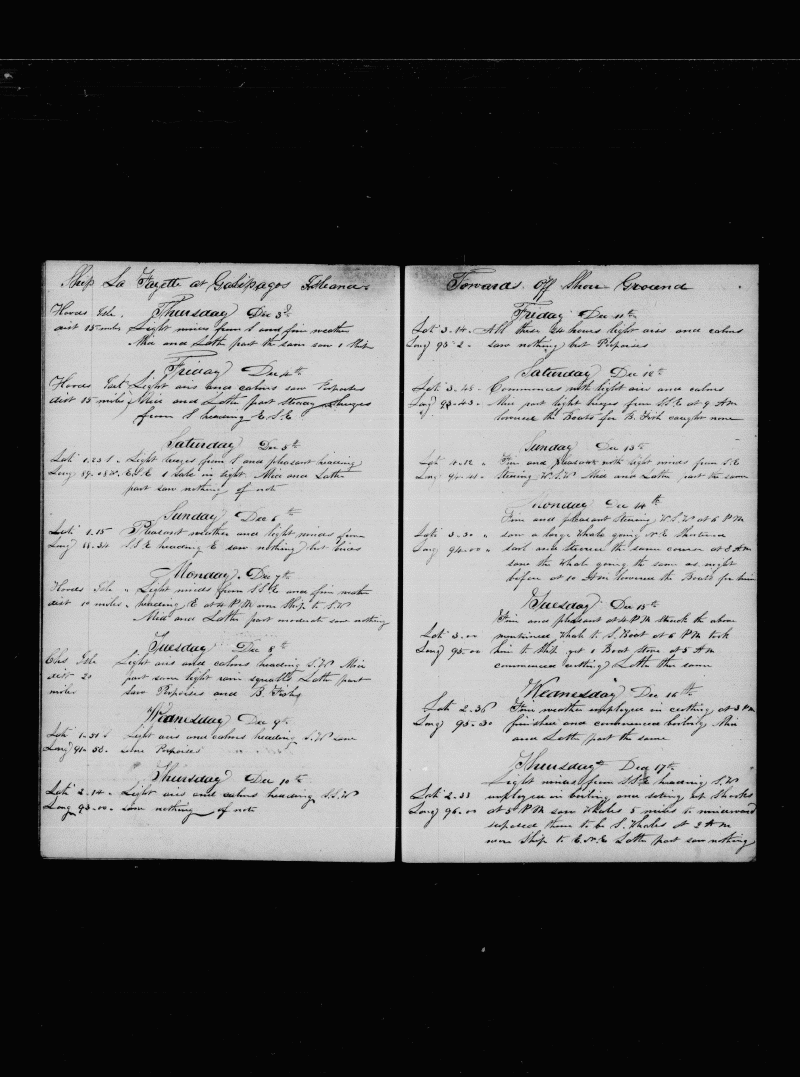 Ship La Fayette at Galipagos Islands
Hoods Isle. Thursday Dec 3d
dist 15 miles Light winds from S and fine weather
Mid and Latter part the same saw 1 Ship
Friday Dec 4th
Hoods Isle Light airs and calms saw Porpoises
dist 15 miles Mid and Latter part steady Breezes
from S heading E.S.E
Saturday Dec 5th
Lat 1.23 S. Light brezes from S and pleasant heading
Long 89.08 W. E.S.E 1 Sale in sight. Mid and Latter
part saw nothing of note
Sunday Dec 6th
Lat 1.15 Pleasant weather and light winds from
Long S.S.E heading E saw nothing but
Monday. Dec 7th
Hoods Isle Light winds from S.S.E and fine weather
dist 10 miles. heading E at 4 P.M wore Ship to S.W
Mid and Latter part moderate saw nothing
Tuesday Dec 8th
Chs Isle Light airs and calms heading S.W Mid
dist 20 part some light rain squalls Latter part
miles saw Porpoises and B. Fish
Wednesday Dec 9th
Lat 1-31 S Light airs and calms heading S.W saw
Long 91-56. some Porpoises
Thursday Dec 10th
Lat 2.14. Light airs and calms heading S.S.W
Long 93.00. saw nothing of note
Towards Off Shore Ground
Friday Dec 11th
Lat 3.14. All these 24 hours light airs and calms
Long 93 2. saw nothing but Porpoises
Saturday Dec 12th
Lat 3.45. Commences with light airs and calms
Long 93-43. Mid part light brezes from S.S.E at 9 A M
lowered the Boats for B. Fish caught none
Sunday Dec 13th
Lat 4.12 Fine and pleasant with light winds from S.E
Long 94-41 Steering W.S.W Mid and Latter part the same
Monday Dec 14th
Fine and pleasant Steering W.S.W at 6 P M
Lat 3.30 saw a large Whale going N.E Shortened
Long 94.00 sail and steered the same course at 3 A M
saw the Whale going the same as night
before at 10 A m lowered the Boats for him
Tuesday Dec 15th
Fine and pleasant at 4 P M struck the above
Lat 3.00 mentioned Whale to S. Boat at 6 P M took
Long 95.00 him to Ship got 1 Boat stove at 5 A M
commenced cutting Latt the same
Wednesday Dec 16th
Lat 2.36 Fine weather employed in cutting at 3 P M
Long 95-30 finished and commenced boiling Mid
and Latt part the same
Thursday Dec 17th
Light winds from S.S.E heading S.W
Lat 2.33 employed in boiling and
Long 96.00 at 5 P M saw Whales 5 miles to windward
suposed them to be S. Whales at 2 A M
wore Ship to E.N.E Latter part saw nothing